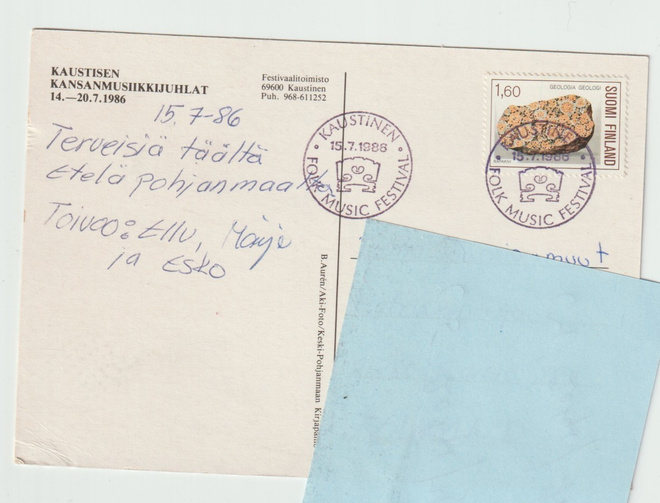 KAUSTISEN
KANSANMUSIIKKIJUHLAT
14.—20.7.1986
Festivaalitoimisto
69600 Kaustinen
Puh. 968-611252
15.7-86
Terveisiä täältä
Etelä pohjanmaalta
Toivoo: Ellu, Marje
ja Esko
KAUSTINEN
15.7.1986
FOLK MUSIC FESTIVAL
1,60
GEOLOGIA GEOLOGI
SUOMI FINLAND
KAUSTINEN
15.7.1986
FOLK MUSIC FESTIVAL
B.Aurén/Aki-Foto/Keski-Pohjanmaan